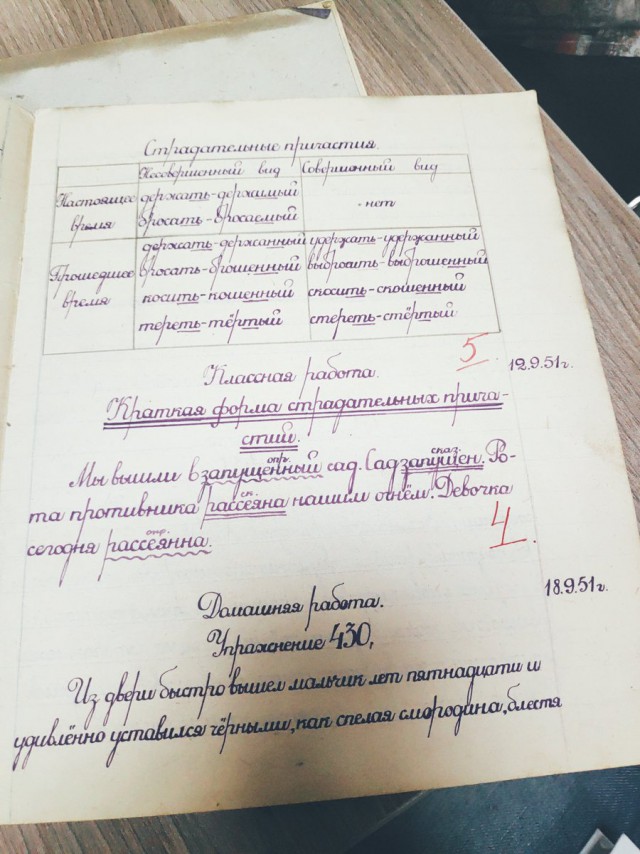 Страдательные причастия.
Несовершенный вид Совершенный вид
Настоящее время держать-держимый нет
бросать-бросаемый
Прошедшее время держать-держанный удержать-удержанный
бросать-брошенный выбросить-выброшенный
косить-кошенный скосить-скошенный
тереть-тёртый стереть-стёртый
5. 12.9.51г.
Классная работа.
Краткая форма страдательных прича-
стий.
опр. сказ.
Мы вышли в запущенный сад. Сад запущен. Ро-
ск.
та противника рассеяна нашим огнём. Девочка
опр.
сегодня рассеянна.
4. 18.9.51г.
Домашняя работа.
Упражнение 430,
Из двери быстро вышел мальчик лет пятнадцати и
удивлённо уставился чёрными, как спелая смородина, блестя